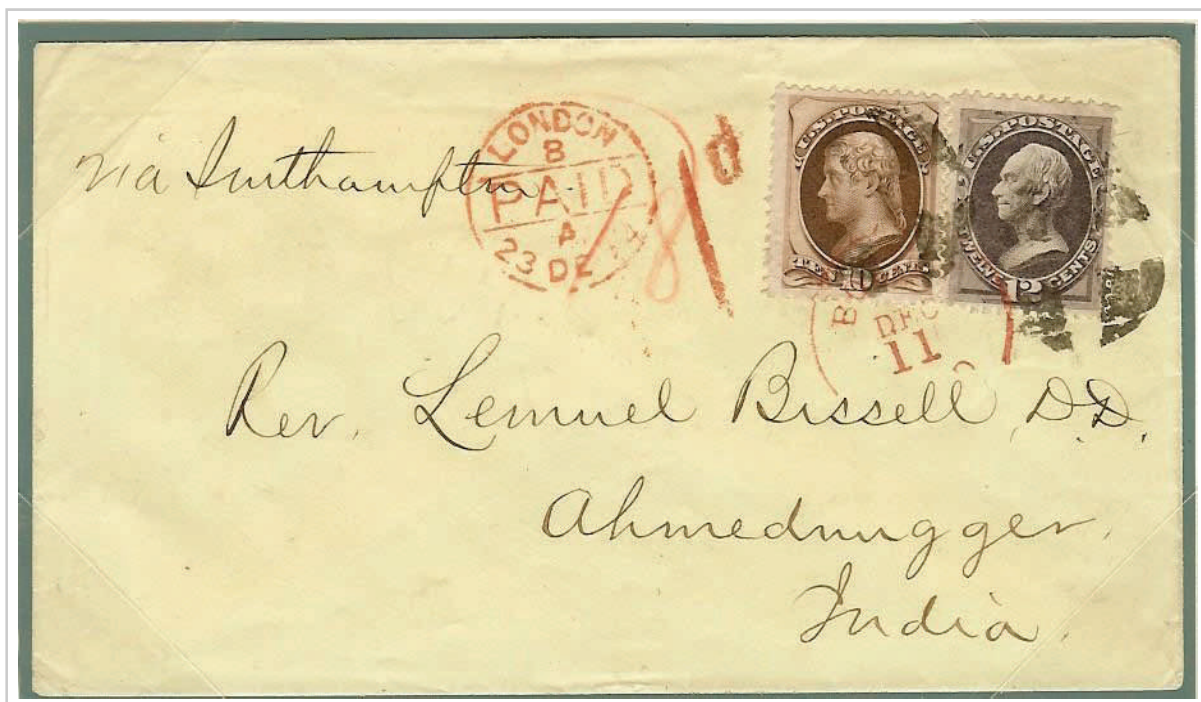 via Southampton
LONDON
8
PAID
A
23 DE 74
18
1d
U.S. POSTAGE
TEN 10 CENTS
U.S. POSTAGE
TWELVE 12 CENTS
DEC
11
Rev. Lemuel Bissell, D.D.
Ahmednugger.
India.